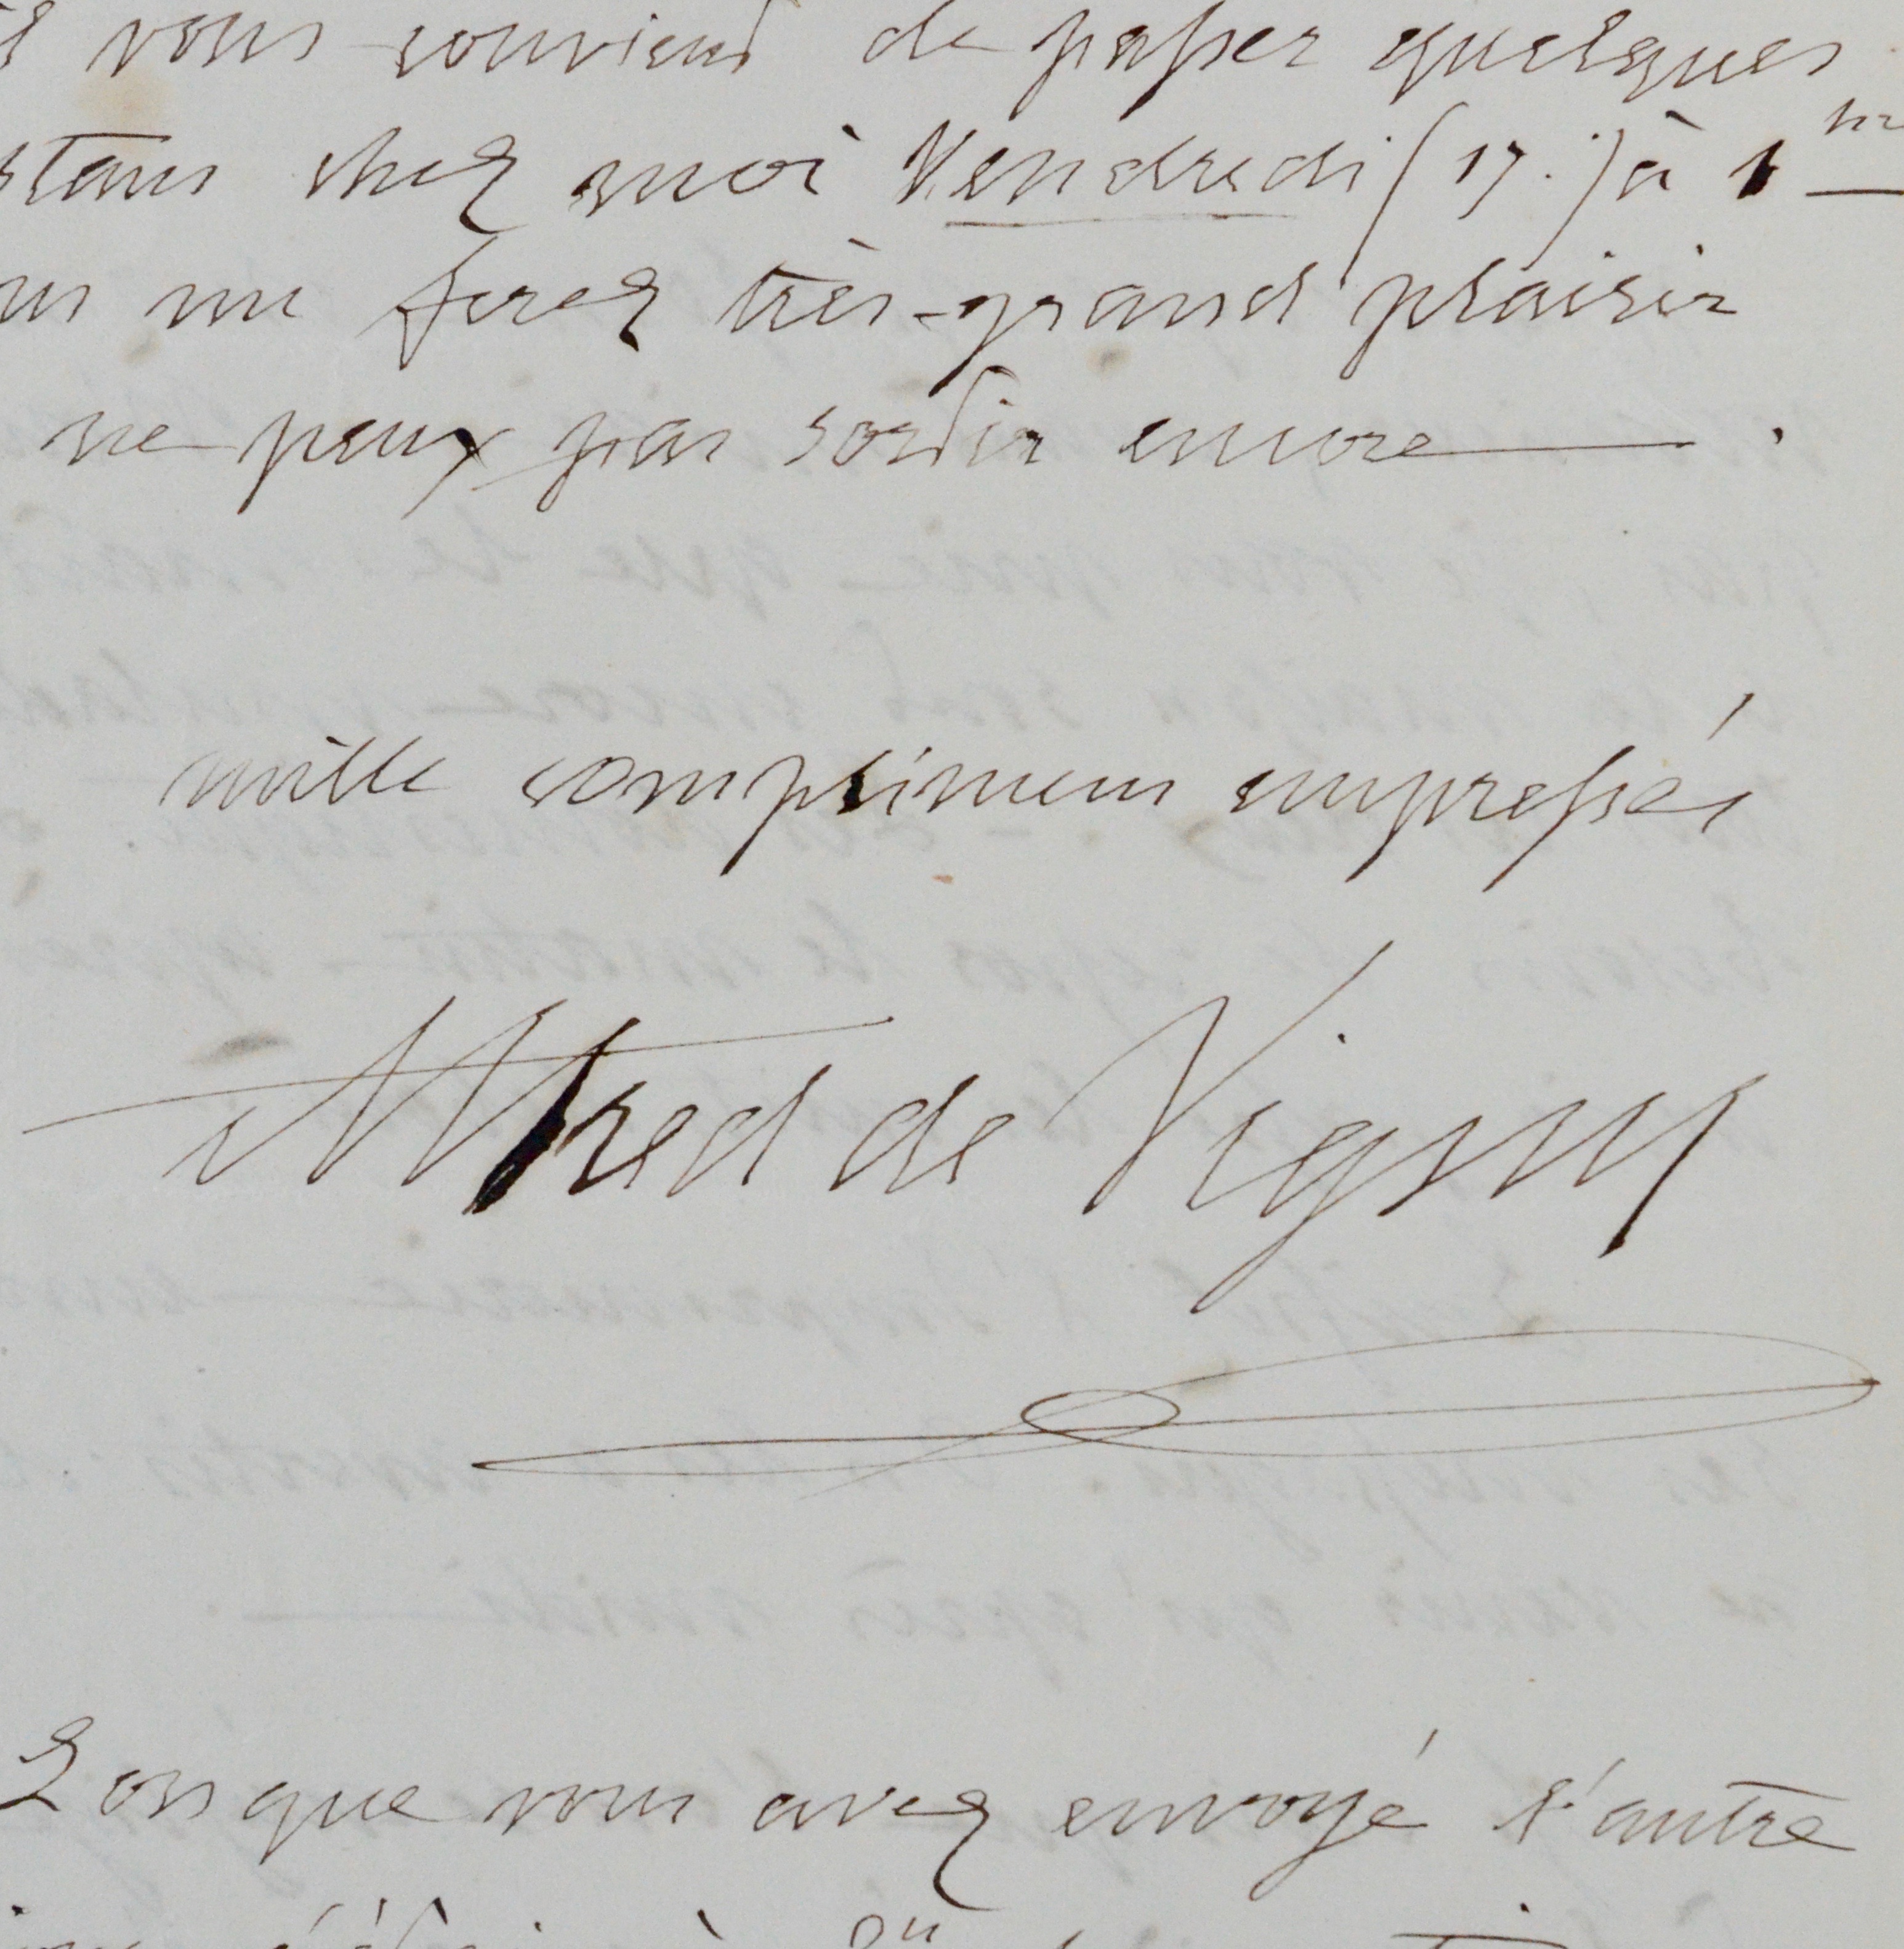 vous convient de passer quelques
stans chez moi Vendredi (17.) à 1
me ferez très-grand plaisir
ne peux pas sortir encore .
mille complimens empressés
Alfred de Vigny
Lorsque vous avez envoyé l'autre